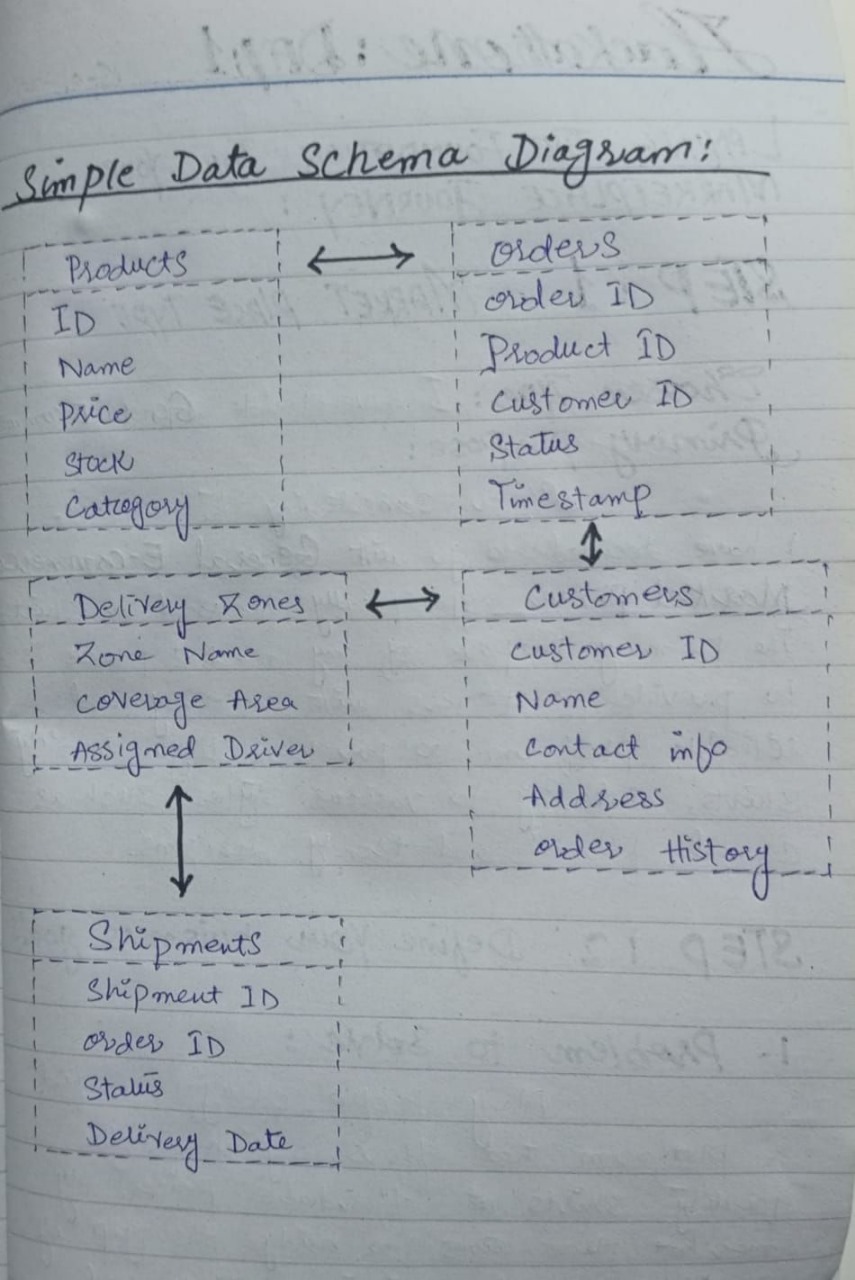 Simple Data Schema Diagram:
Products
ID
Name
Price
Stock
Category
orders
order ID
Product ID
Customer ID
Status
Timestamp
Delivery Zones
Zone Name
coverage Area
Assigned Driver
Customers
Customer ID
Name
Contact info
Address
order History
Shipments
Shipment ID
order ID
Status
Delivery Date